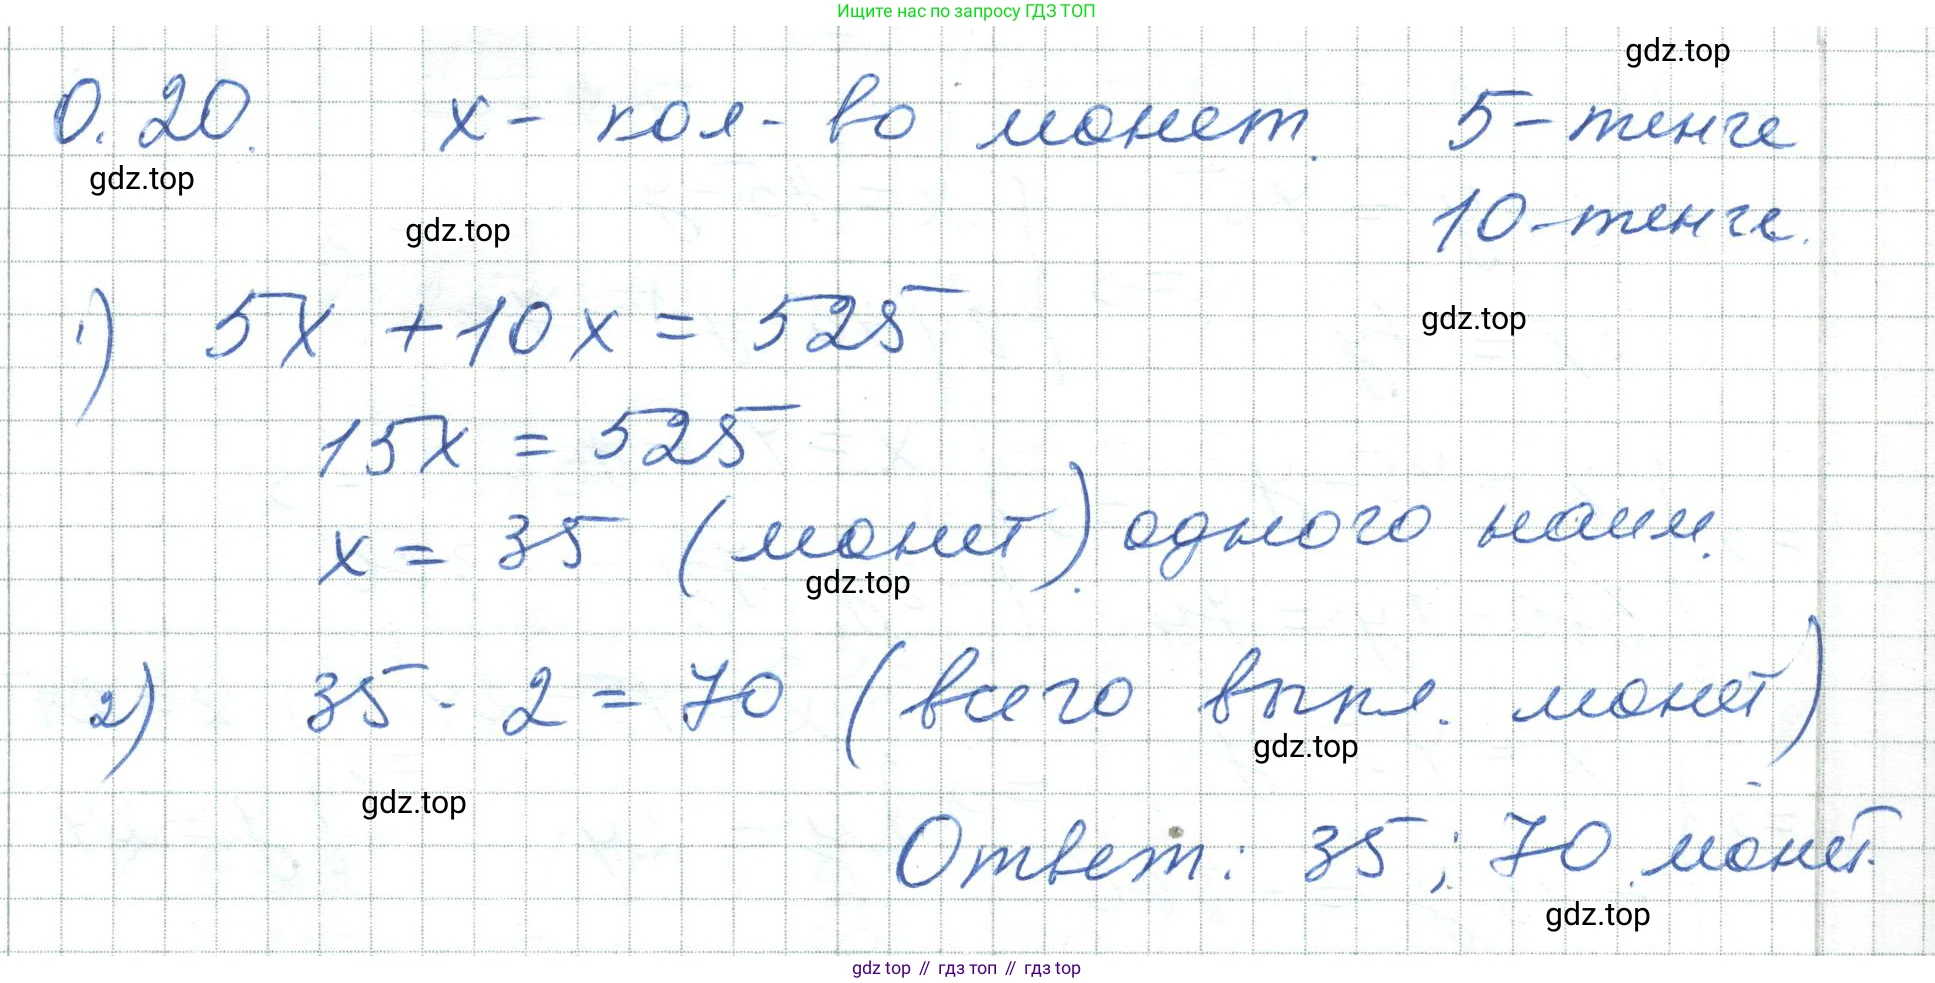 Ищите нас по запросу ГДЗ ТОП
gdz.top
0.20. х - кол-во монет. 5 - тенге
gdz.top
10 - тенге.
gdz.top
1) 5х + 10х = 525
gdz.top
15х = 525
х = 35 (монет). одного наим.
gdz.top
2) 35 · 2 = 70 (всего выпл. монет).
gdz.top
gdz.top
Ответ: 35; 70 монет.
gdz.top
gdz top // гдз топ // gdz.top